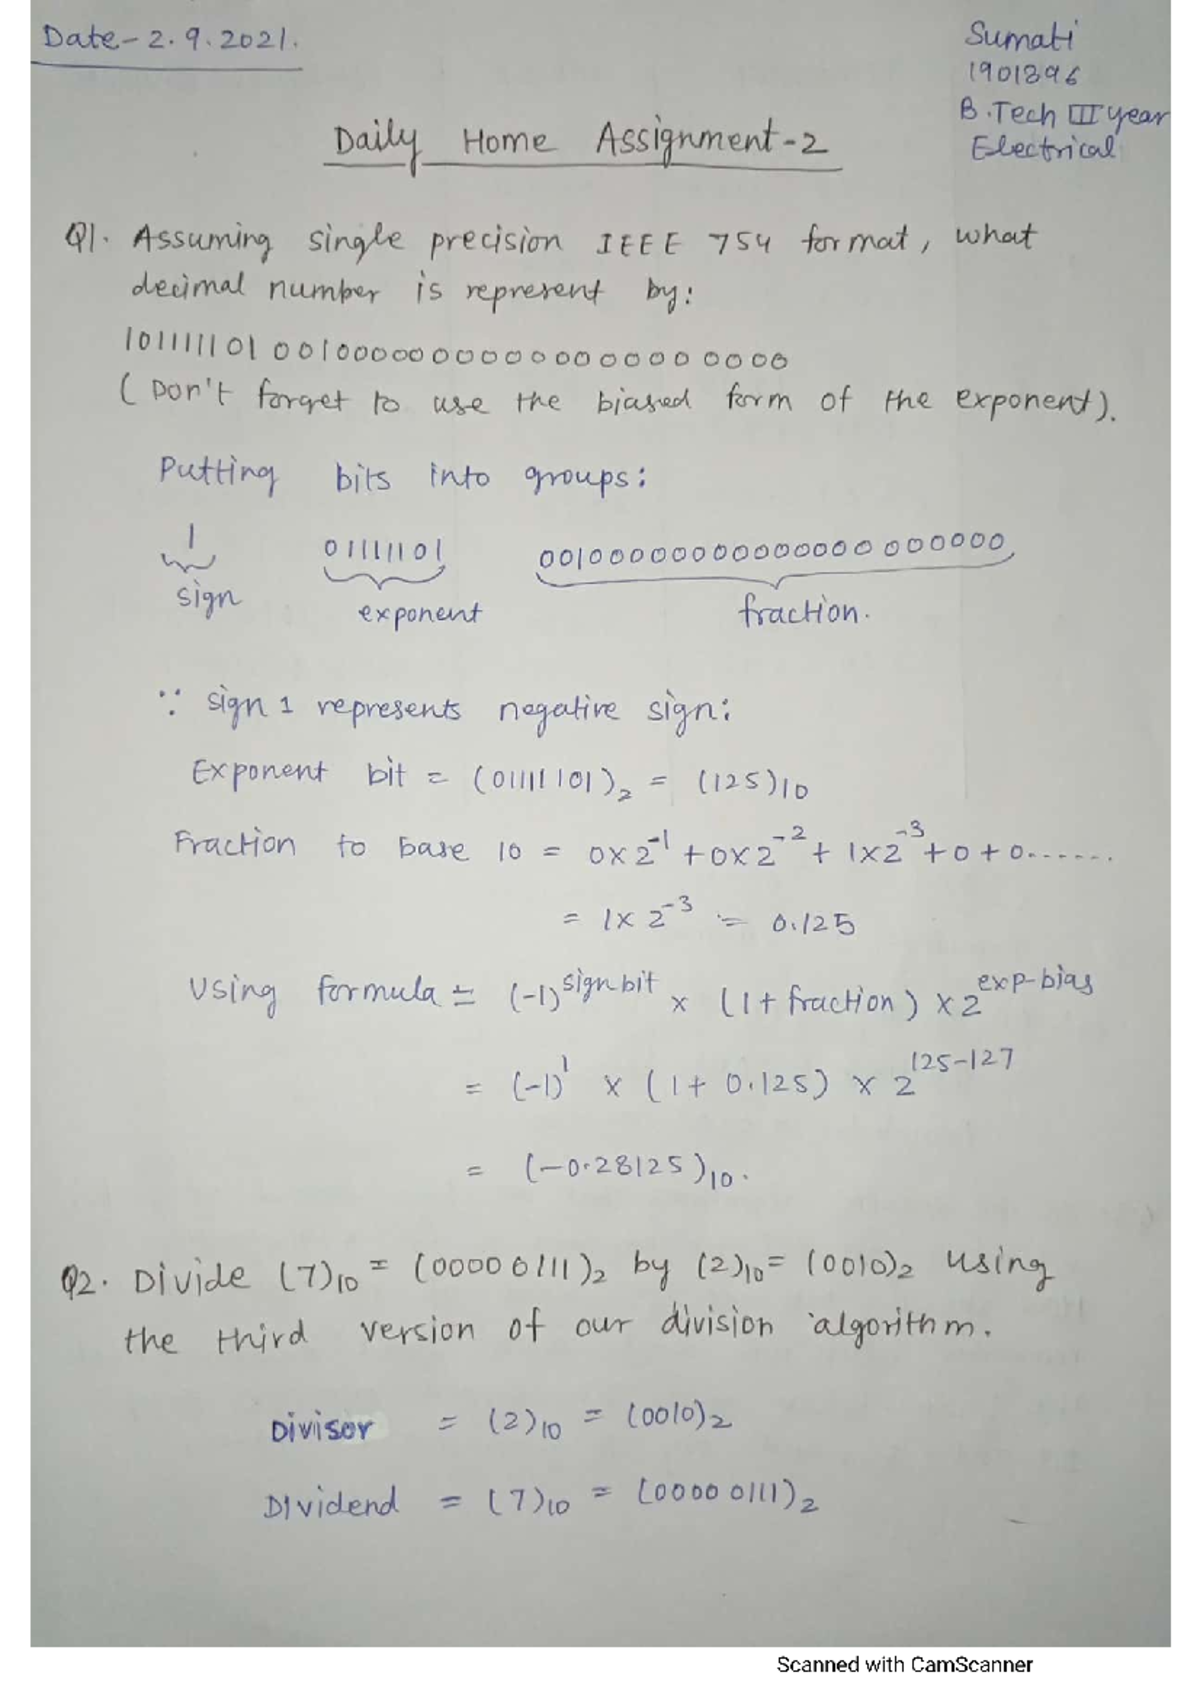 Date - 2.9.2021.
Sumati
1901896
B.Tech III year
Electrical
Daily Home Assignment-2
Q1. Assuming single precision IEEE 754 format, what
decimal number is represent by:
10111110100100000000000000000000
(Don't forget to use the biased form of the exponent).
Putting bits into groups:
1 01111101 00100000000000000000000
sign exponent fraction.
∵ sign 1 represents negative sign:
Exponent bit = (01111101)₂ = (125)10
Fraction to base 10 = 0×2⁻¹ + 0×2⁻² + 1×2⁻³ + 0 + 0.......
= 1×2⁻³ = 0.125
Using formula = (-1)^sign bit × (1+ fraction) × 2^exp-bias
= (-1)¹ × (1+ 0.125) × 2^125-127
= (-0.28125)10.
Q2. Divide (7)10 = (00000111)2 by (2)10 = (0010)2 using
the third version of our division algorithm.
Divisor = (2)10 = (0010)2
Dividend = (7)10 = (00000111)2
Scanned with CamScanner